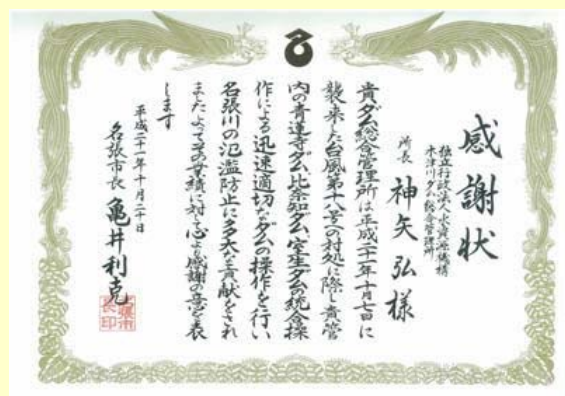 感謝状
独立行政法人水資源機構
木津川ダム総合管理所
所長 神矢弘様
貴ダム総合管理所は平成二十一年十月七日に
襲来した台風第十八号への対処に際し貴管
内の青蓮寺ダム、比奈知ダム、室生ダムの統合操
作による迅速適切なダムの操作を行い
名張川の氾濫防止に多大な貢献をされ
ましたよってその業績に対し心から感謝の意を表
します
平成二十一年十月二十日
名張市長 亀井利克
名張市長印